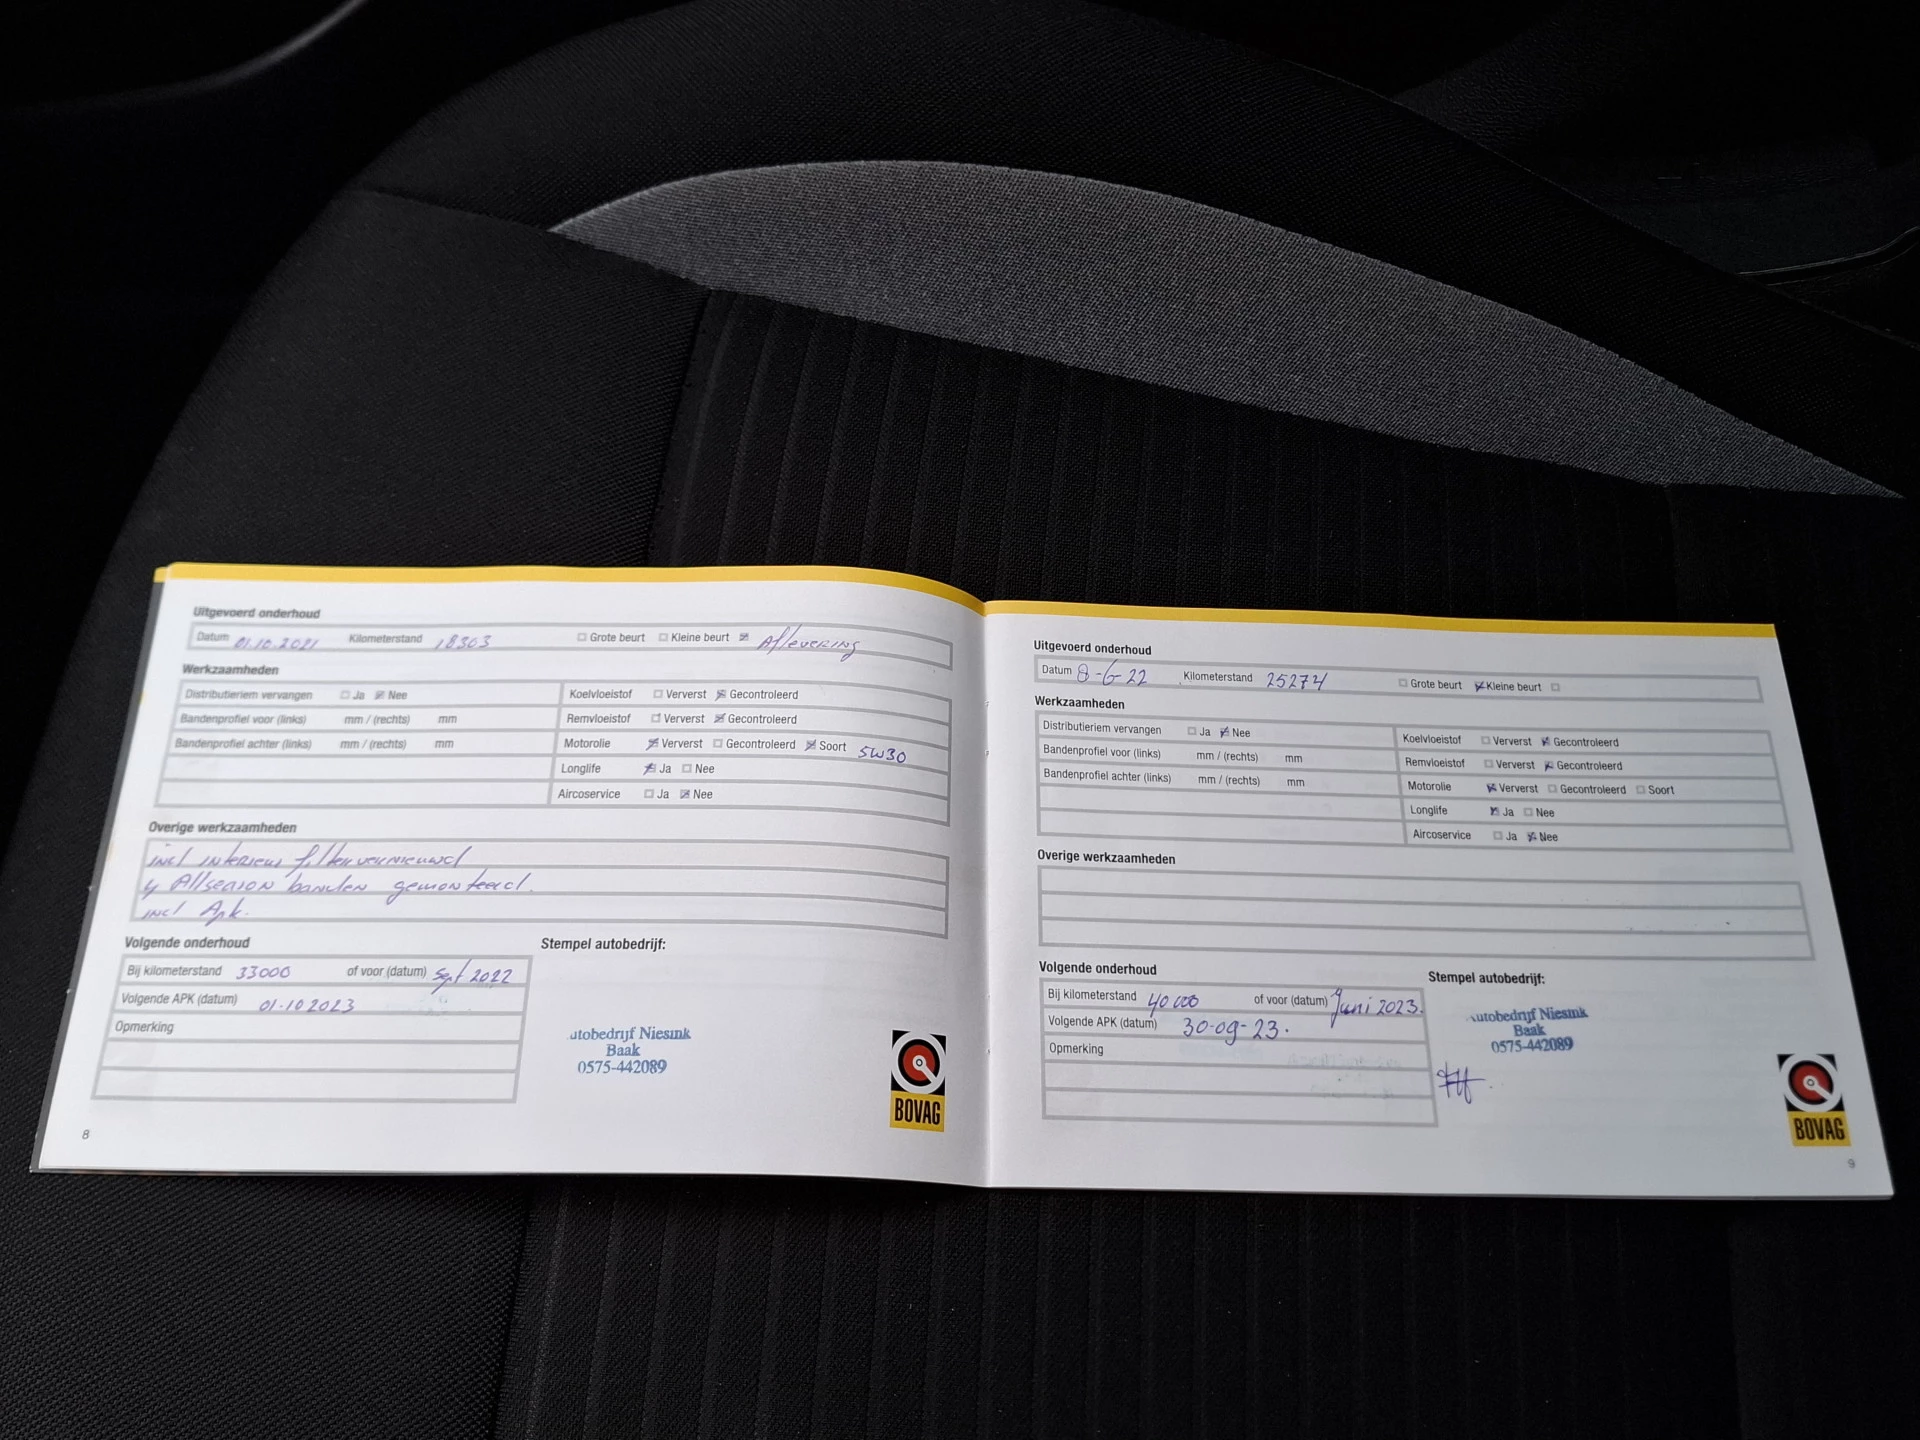 Uitgevoerd onderhoud
Datum 01.10.2021 Kilometerstand 18303 Grote beurt Kleine beurt Aflevering
Werkzaamheden
Distributieriem vervangen Ja Nee
Bandenprofiel voor (links) mm / (rechts) mm
Bandenprofiel achter (links) mm / (rechts) mm
Koelvloeistof Ververst Gecontroleerd
Remvloeistof Ververst Gecontroleerd
Motorolie Ververst Gecontroleerd Soort 5W30
Longlife Ja Nee
Aircoservice Ja Nee
Overige werkzaamheden
incl interieur filter vernieuwd
4 Allseason banden gemonteerd.
incl Apk.
Volgende onderhoud
Bij kilometerstand 33000 of voor (datum) Sept 2022
Volgende APK (datum) 01-10 2023
Opmerking
Stempel autobedrijf:
utobedrijf Niesink
Baak
0575-442089
BOVAG
8
Uitgevoerd onderhoud
Datum 8-6-22 Kilometerstand 25274 Grote beurt Kleine beurt
Werkzaamheden
Distributieriem vervangen Ja Nee
Bandenprofiel voor (links) mm / (rechts) mm
Bandenprofiel achter (links) mm / (rechts) mm
Koelvloeistof Ververst Gecontroleerd
Remvloeistof Ververst Gecontroleerd
Motorolie Ververst Gecontroleerd Soort
Longlife Ja Nee
Aircoservice Ja Nee
Overige werkzaamheden
Volgende onderhoud
Bij kilometerstand 40 000 of voor (datum) Juni 2023.
Volgende APK (datum) 30-09-23.
Opmerking
Stempel autobedrijf:
utobedrijf Niesink
Baak
0575-442089
BOVAG
9